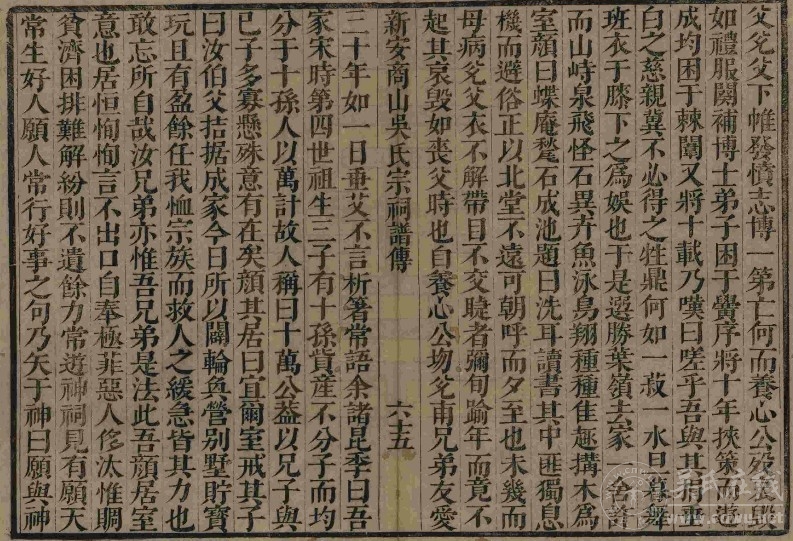 父兊父下帷發憤志博一第亡何而養心公歿公毀
如禮服闋補博士弟子困于黌序將十年挾策而遊
成均困于棘闈又將十載乃嘆曰嗟乎吾與其屑事
白之慈親冀不必得之牲鼎何如一菽一水旦暮舞
班衣于膝下之為娛也于是選勝葉嶺去家一舍許
而山峙泉飛怪石異卉魚泳鳥翔種種佳趣搆木為
室顏曰蝶庵甃石成池題曰洗耳讀書其中匪獨息
機而避俗正以北堂不遠可朝呼而夕至也未幾而
母病兊父衣不解帶目不交睫者彌旬踰年而竟不
起其哀毀如喪父時也自養心公歾兊甫兄弟友愛
新安商山吳氏宗祠譜傳
六十五
三十年如一日垂艾不言析箸常語余諸昆季曰吾
家宋時第四世祖生三子有十孫貲産不分子而均
分于十孫人以萬計故人稱曰十萬公葢以兄子與
已子多寡懸殊意有在矣顏其居曰宜爾室戒其子
曰汝伯父拮据成家今日所以闢輪奐營別墅貯寶
玩且有盈餘任我恤宗族而救人之緩急皆其力也
敢忘所自哉汝兄弟亦惟吾兄弟是法此吾顏居室
意也居恒恂恂言不出口自奉極菲惡人侈汰惟賙
貧濟困排難解紛則不遺餘力常遊神祠見有願天
常生好人願人常行好事之句乃矢于神曰願與神